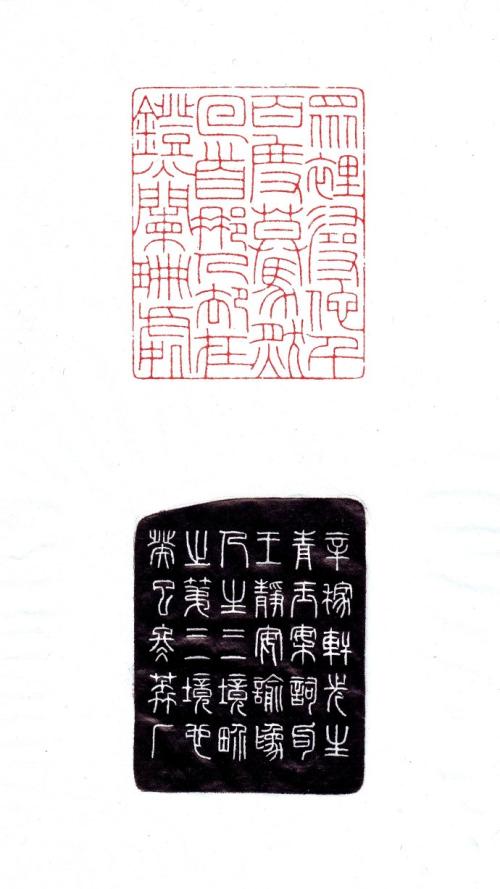 眾裡尋他千
百度驀然
回首那人卻在
鐙火闌珊處
辛稼軒先生
青玉案詞句
王靜安諭爲
人生三境畍
之第三境也
莽厂